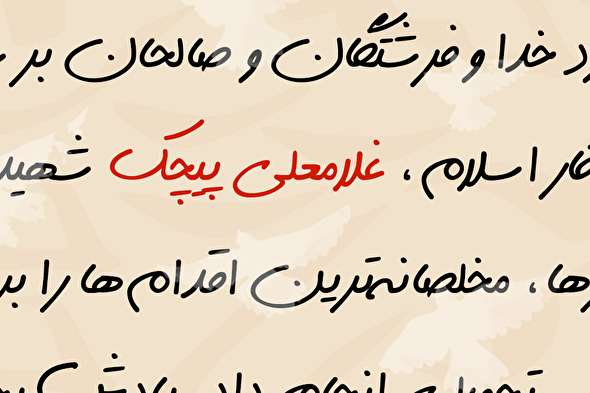 خدا و فرشتگان و صالحان بر
اسلام، غلامعلی پیچک شهید
ها، مخلصانه‌ترین اقدام‌ها را
انجام داد